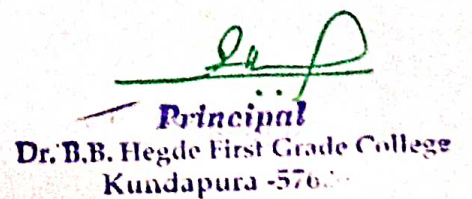 Principal
Dr. B.B. Hegde First Grade College
Kundapura -576